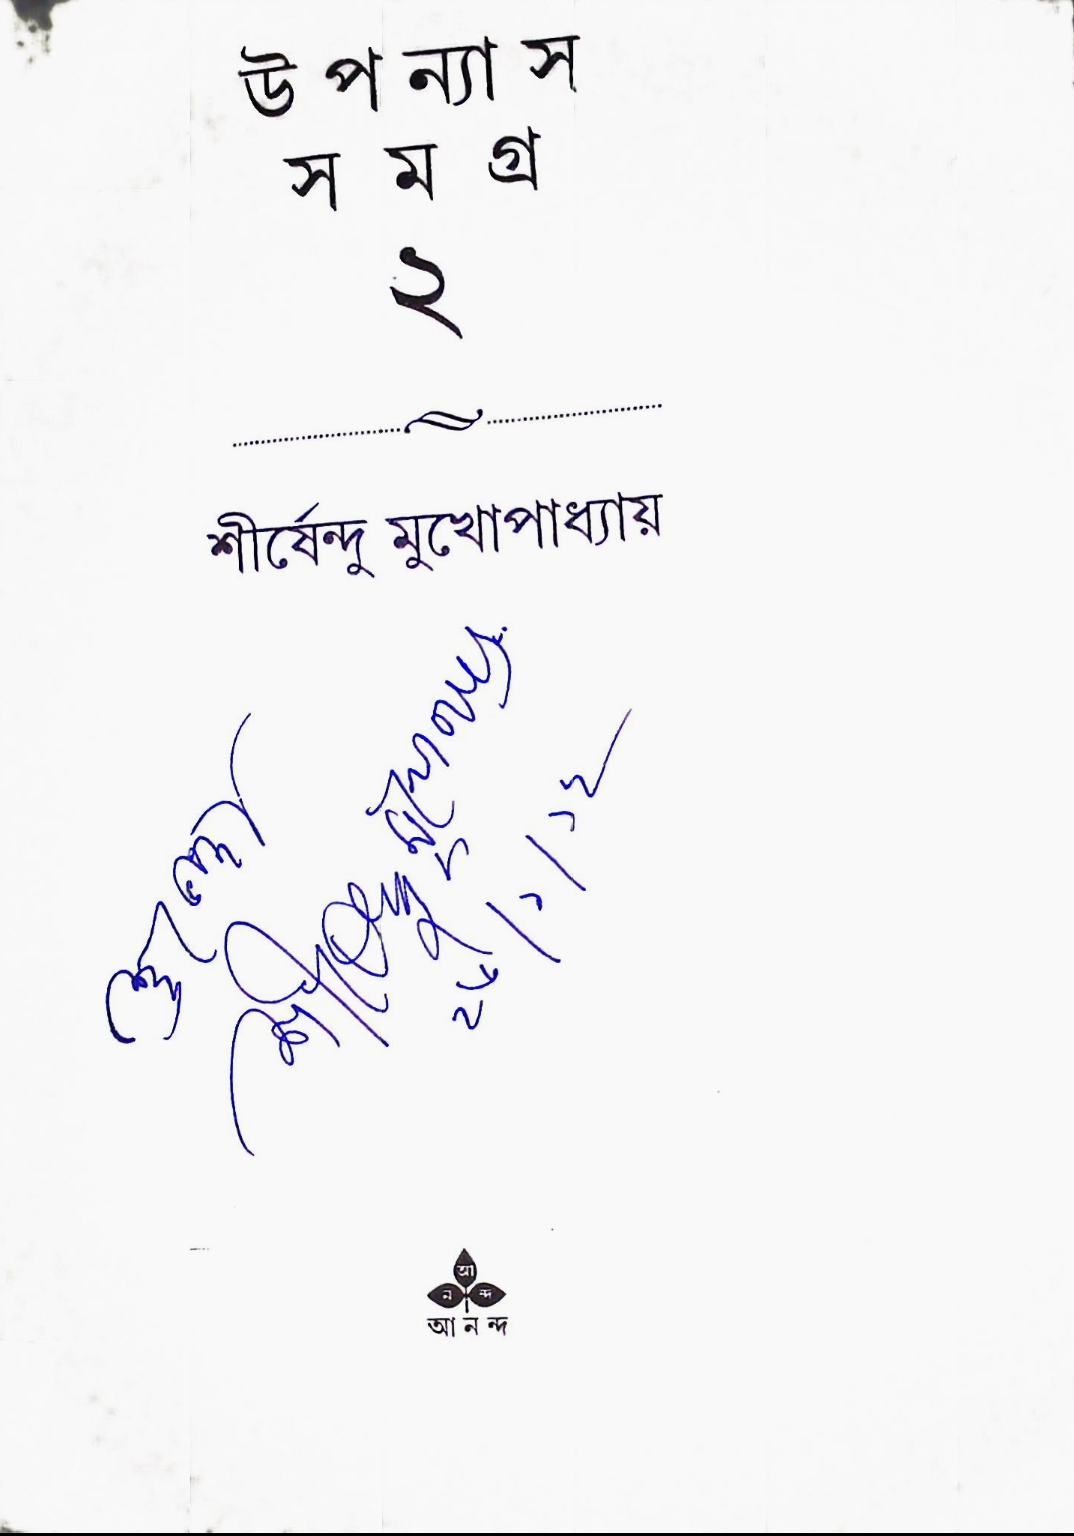 উপন্যাস
সমগ্র
২
শীর্ষেন্দু মুখোপাধ্যায়
শীর্ষেন্দু মুখোপাধ্যায়
২৬/১/১২
আ
ন ন্দ
আনন্দ